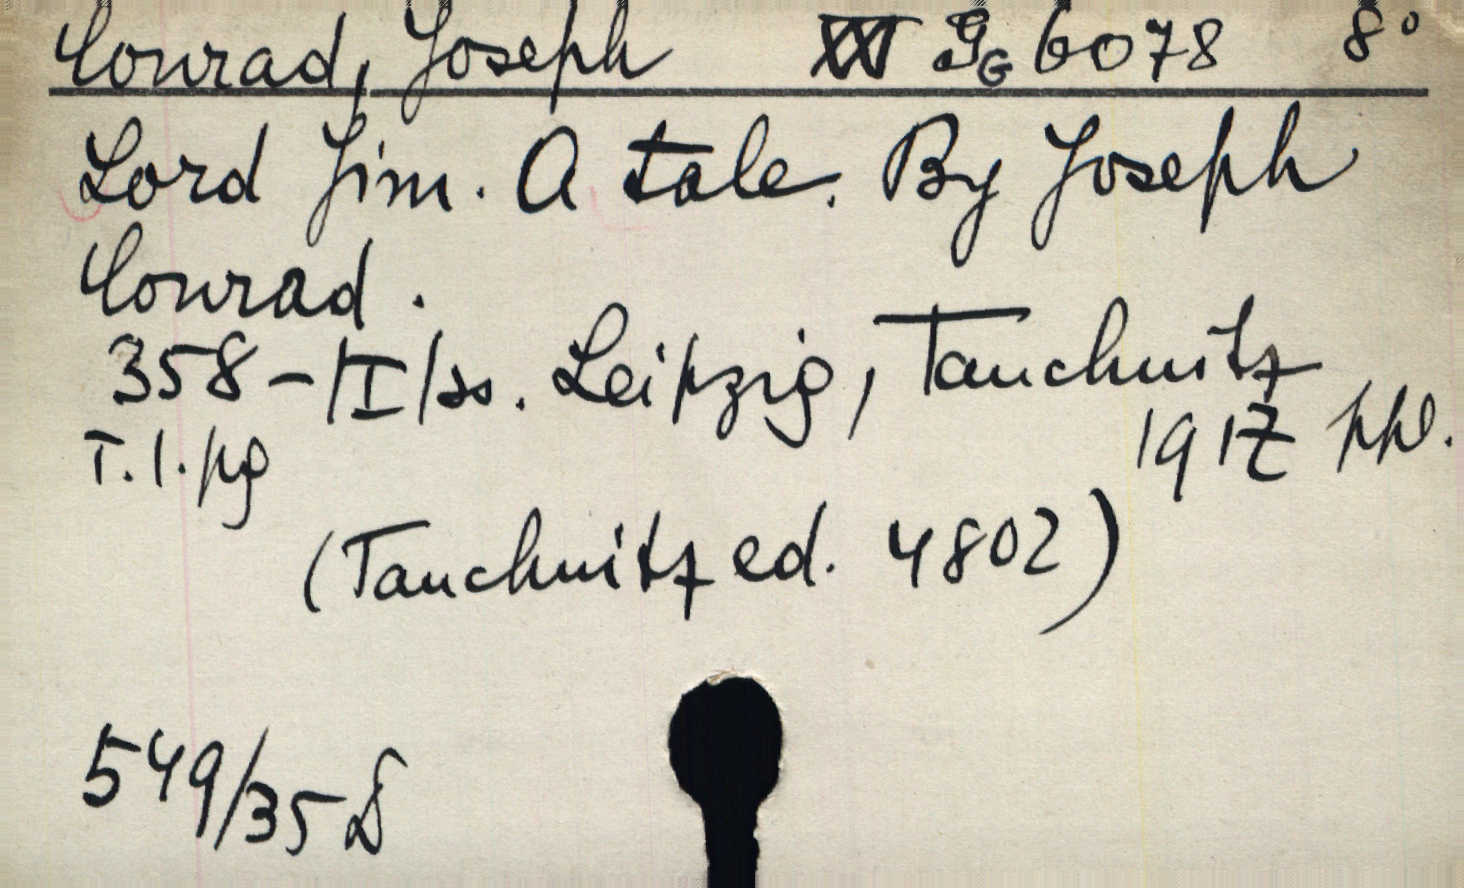 Conrad, Joseph G_G 6078 8°
Lord Jim. A tale. By Joseph
Conrad.
358-/I/ss. Leipzig, Tauchnitz
T.l.pg 1917 ppl.
(Tauchnitz ed. 4802)
549/35